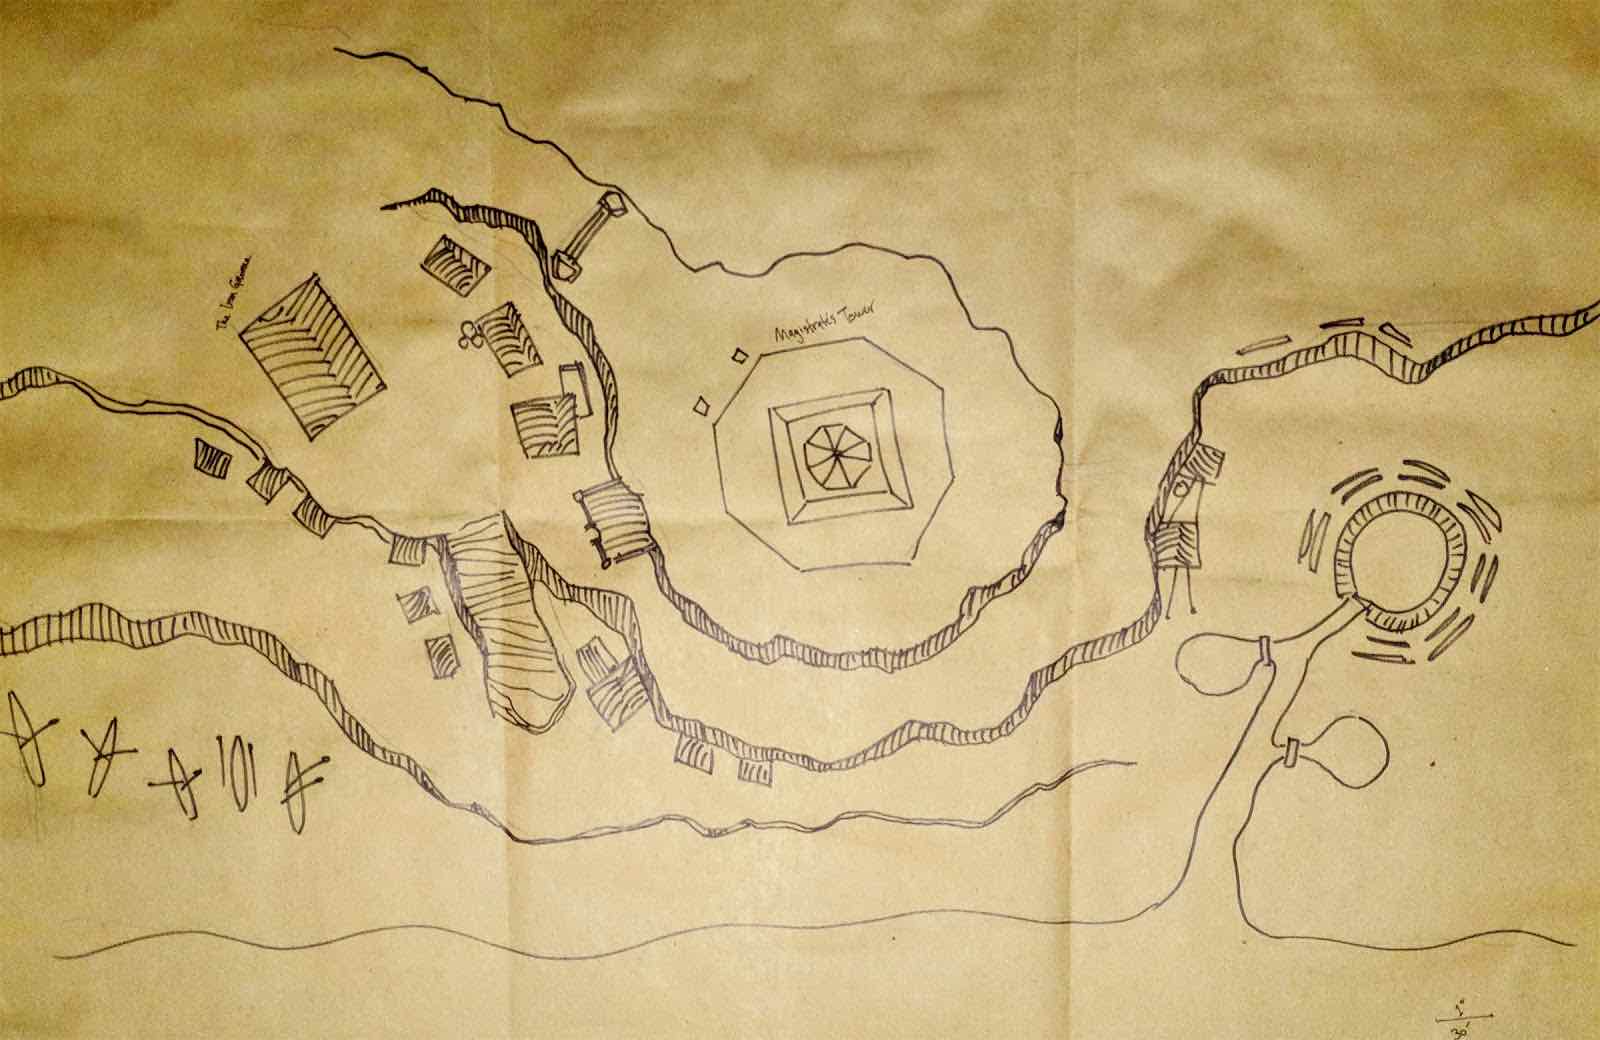 The Iron Gnome
Magistrate's Tower
1"
30'